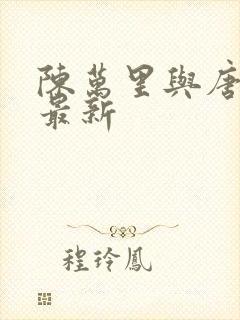 陳萬里與唐
最新
程玲鳳